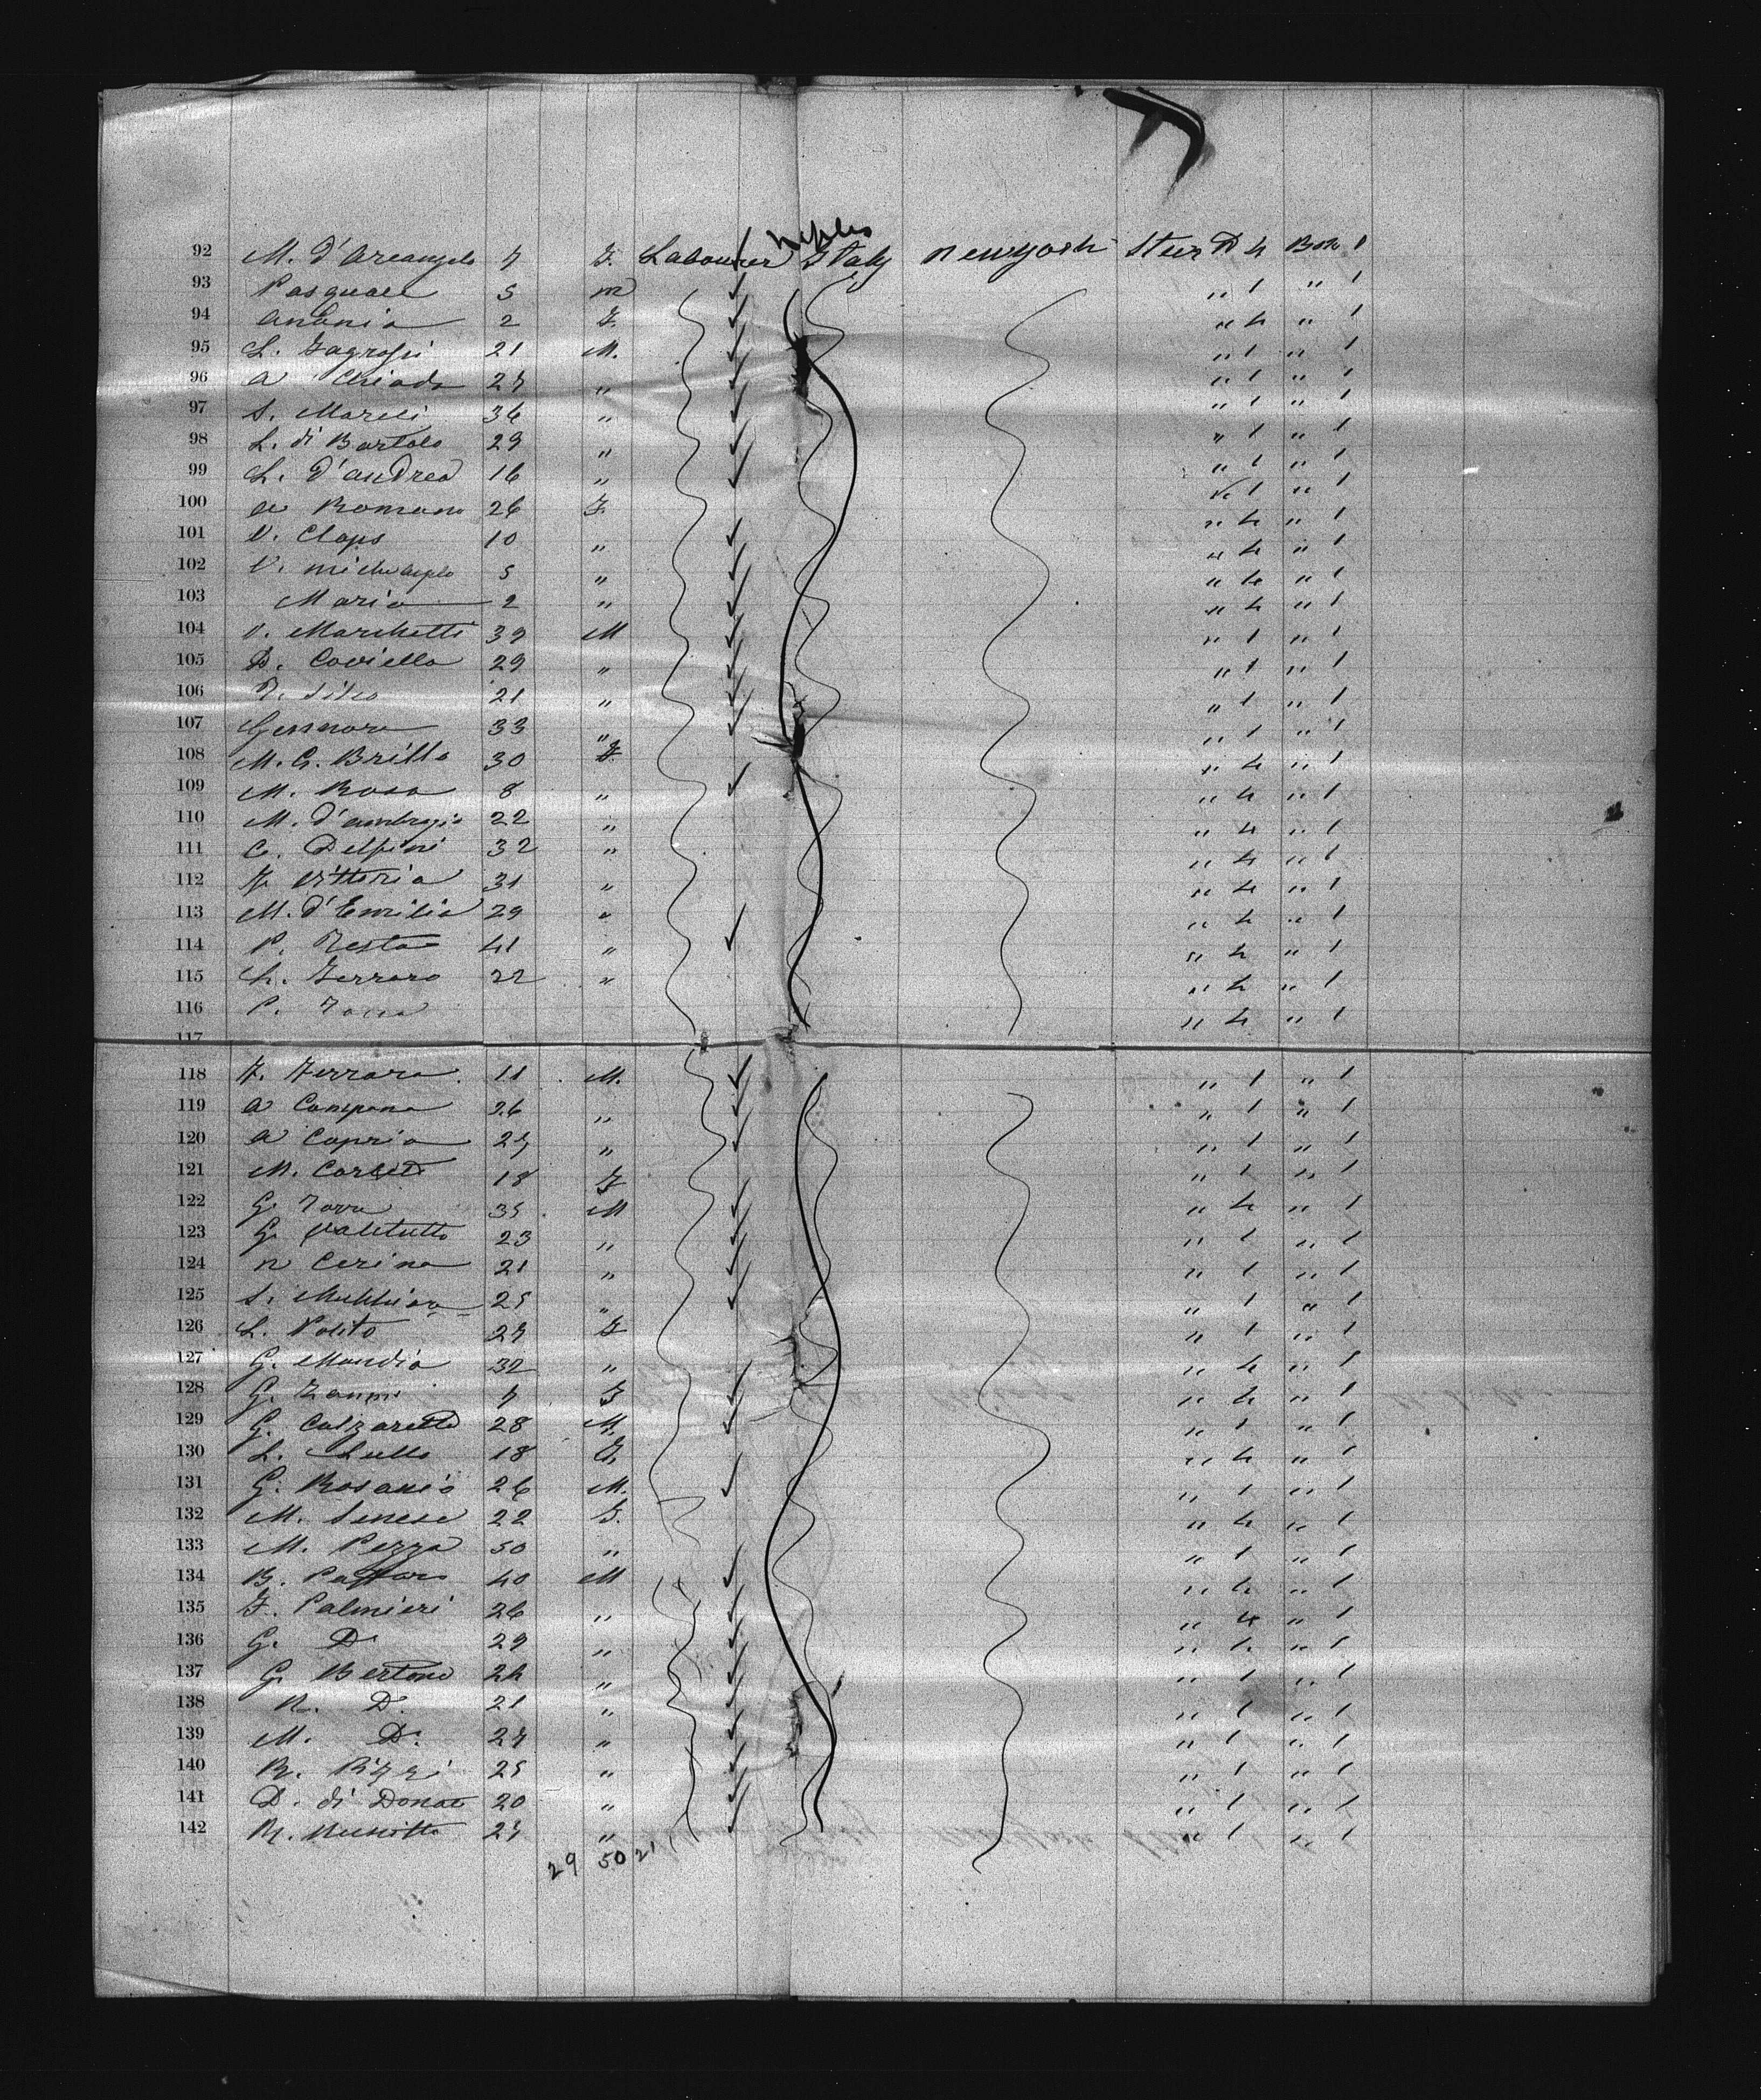 Neples
92 M. d'Arcangelo 7 F. Labourer Italy newyork Steer D 4 Box 1
93 Pasquale 5 m " 1 " 1
94 Antonia 2 F. " 4 " 1
95 L. 21 M. " 1 " 1
96 A 27 " " 1 " 1
97 S. 36 " " 1 " 1
98 L. di Bartolo 29 " " 1 " 1
99 L. d'andrea 16 " " 1 " 1
100 Romano 26 F. " 4 " 1
101 V. Claps 10 " " 4 " 1
102 V. 5 " " 4 " 1
103 Maria 2 " " 4 " 1
104 V. Marchetti 39 M " 1 " 1
105 D. Coviella 29 " " 1 " 1
106 21 " " 1 " 1
107 Gennaro 33 " " 1 " 1
108 M. G. Brilla 30 F. " 4 " 1
109 M. Rosa 8 " " 4 " 1
110 M. 22 " " 4 " 1
111 C. Delfini 32 " " 4 " 1
112 F. Vittoria 31 " " 4 " 1
113 M. d'Emilia 29 " " 4 " 1
114 P. Testa 41 " " 4 " 1
115 Ferraro 22 " " 4 " 1
116 P. " 4 " 1
117
118 F. Ferrara 11 M. " 1 " 1
119 A Campana 26 " " 1 " 1
120 A Capria 27 " " 1 " 1
121 M. 18 F " 1 " 1
122 G. 35 M " 4 " 1
123 G. Valitutto 23 " " 1 " 1
124 n Cerina 21 " " 1 " 1
125 S. 25 " " 1 " 1
126 L. Polito 27 F " 1 " 1
127 G. Mandia 32 " " 4 " 1
128 G. 7 F " 4 " 1
129 G. Calzaretta 28 M. " 1 " 1
130 L. Lullo 18 F. " 4 " 1
131 G. Rosania 26 M. " 1 " 1
132 M. Senese 22 F. " 4 " 1
133 M. Pezza 50 " " 1 " 1
134 B. 40 M " 4 " 1
135 F. Palmieri 26 " " 4 " 1
136 G. D. 29 " " 1 " 1
137 G. Bertone 24 " " 1 " 1
138 R. D. 21 " " 1 " 1
139 M. D. 27 " " 1 " 1
140 R. Rizzi 25 " " 1 " 1
141 D. di Donat 20 " " 1 " 1
142 27 " " 1 " 1
29 50 21